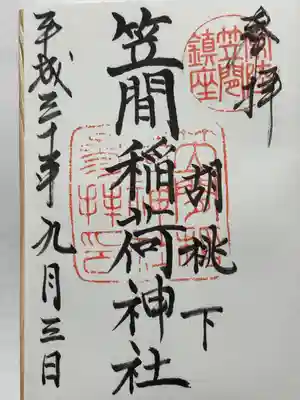 奉拝
笠間
鎮座
胡桃下
笠間稲荷神社
平成三十年九月三日